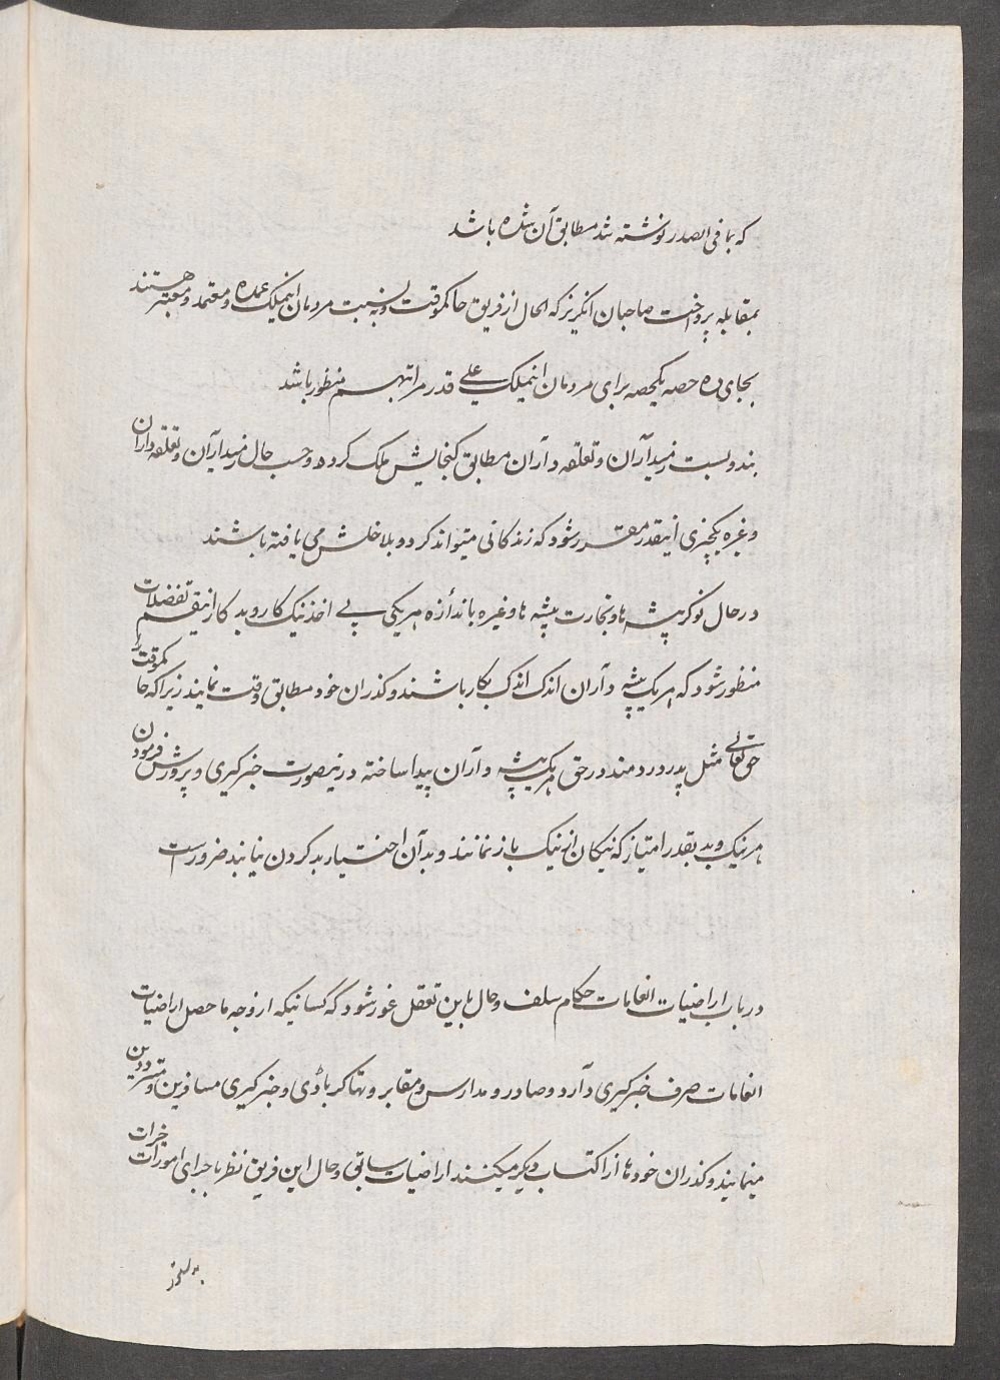 که بما فی الصدر نوشته شد مطابق آن شده باشد
بمقابله پرداخت صاحبان انگریز که الحال از فریق حاکموقت و به نسبت مردمان اینملک عمده و معتمد و معتبر هستند
بجای ده حصه یکحصه برای مردمان اینملک علی قدر مراتبهم منظور باشد
بندوبست زمیدآران و تعلقه دآران مطابق کنجایش ملک کرده و حسب حال زمیدآران و تعلقه داران
و غیره یکچیزی اینقدر مقرر شود که زندکانی میتواند کرد و بلا خلش می یافته باشند
در حال نوکر پیشه ها و تجارت پیشه ها و غیره باندأزه هر یکی پی اخذ نیک کار و بد کار اینقسم تفضلات
منظور شود که هر یک پیشه دآران اندک اندک بکار باشند و کذران خود مطابق وقت نمایند زیرا که حاکموقت را
حق تعالی مثل پدر دردمند در حق هر یک پیشه دآران پیدا ساخته درینصورت خبرکیری و پرورش فرمودن
هر نیک و بد بقدر امتیاز که نیکان از نیک باز نمانند و بدآن اختیار بد کردن نیابند ضرور است
در باب اراضیات انعامات حکام سلف و حال باین تعقل غور شود که کسانیکه از وجه ما حصل اراضیات
انعامات صرف خبرکیری دآرد و صادر و مدارس و مقابر و تهاکر بآدی و خبرکیری مسافرین و مترددین
مینمایند و کذران خودها از اکتساب دیکر میکنند اراضیات سابق و حال این فریق نظر باجرای امورات خیرات